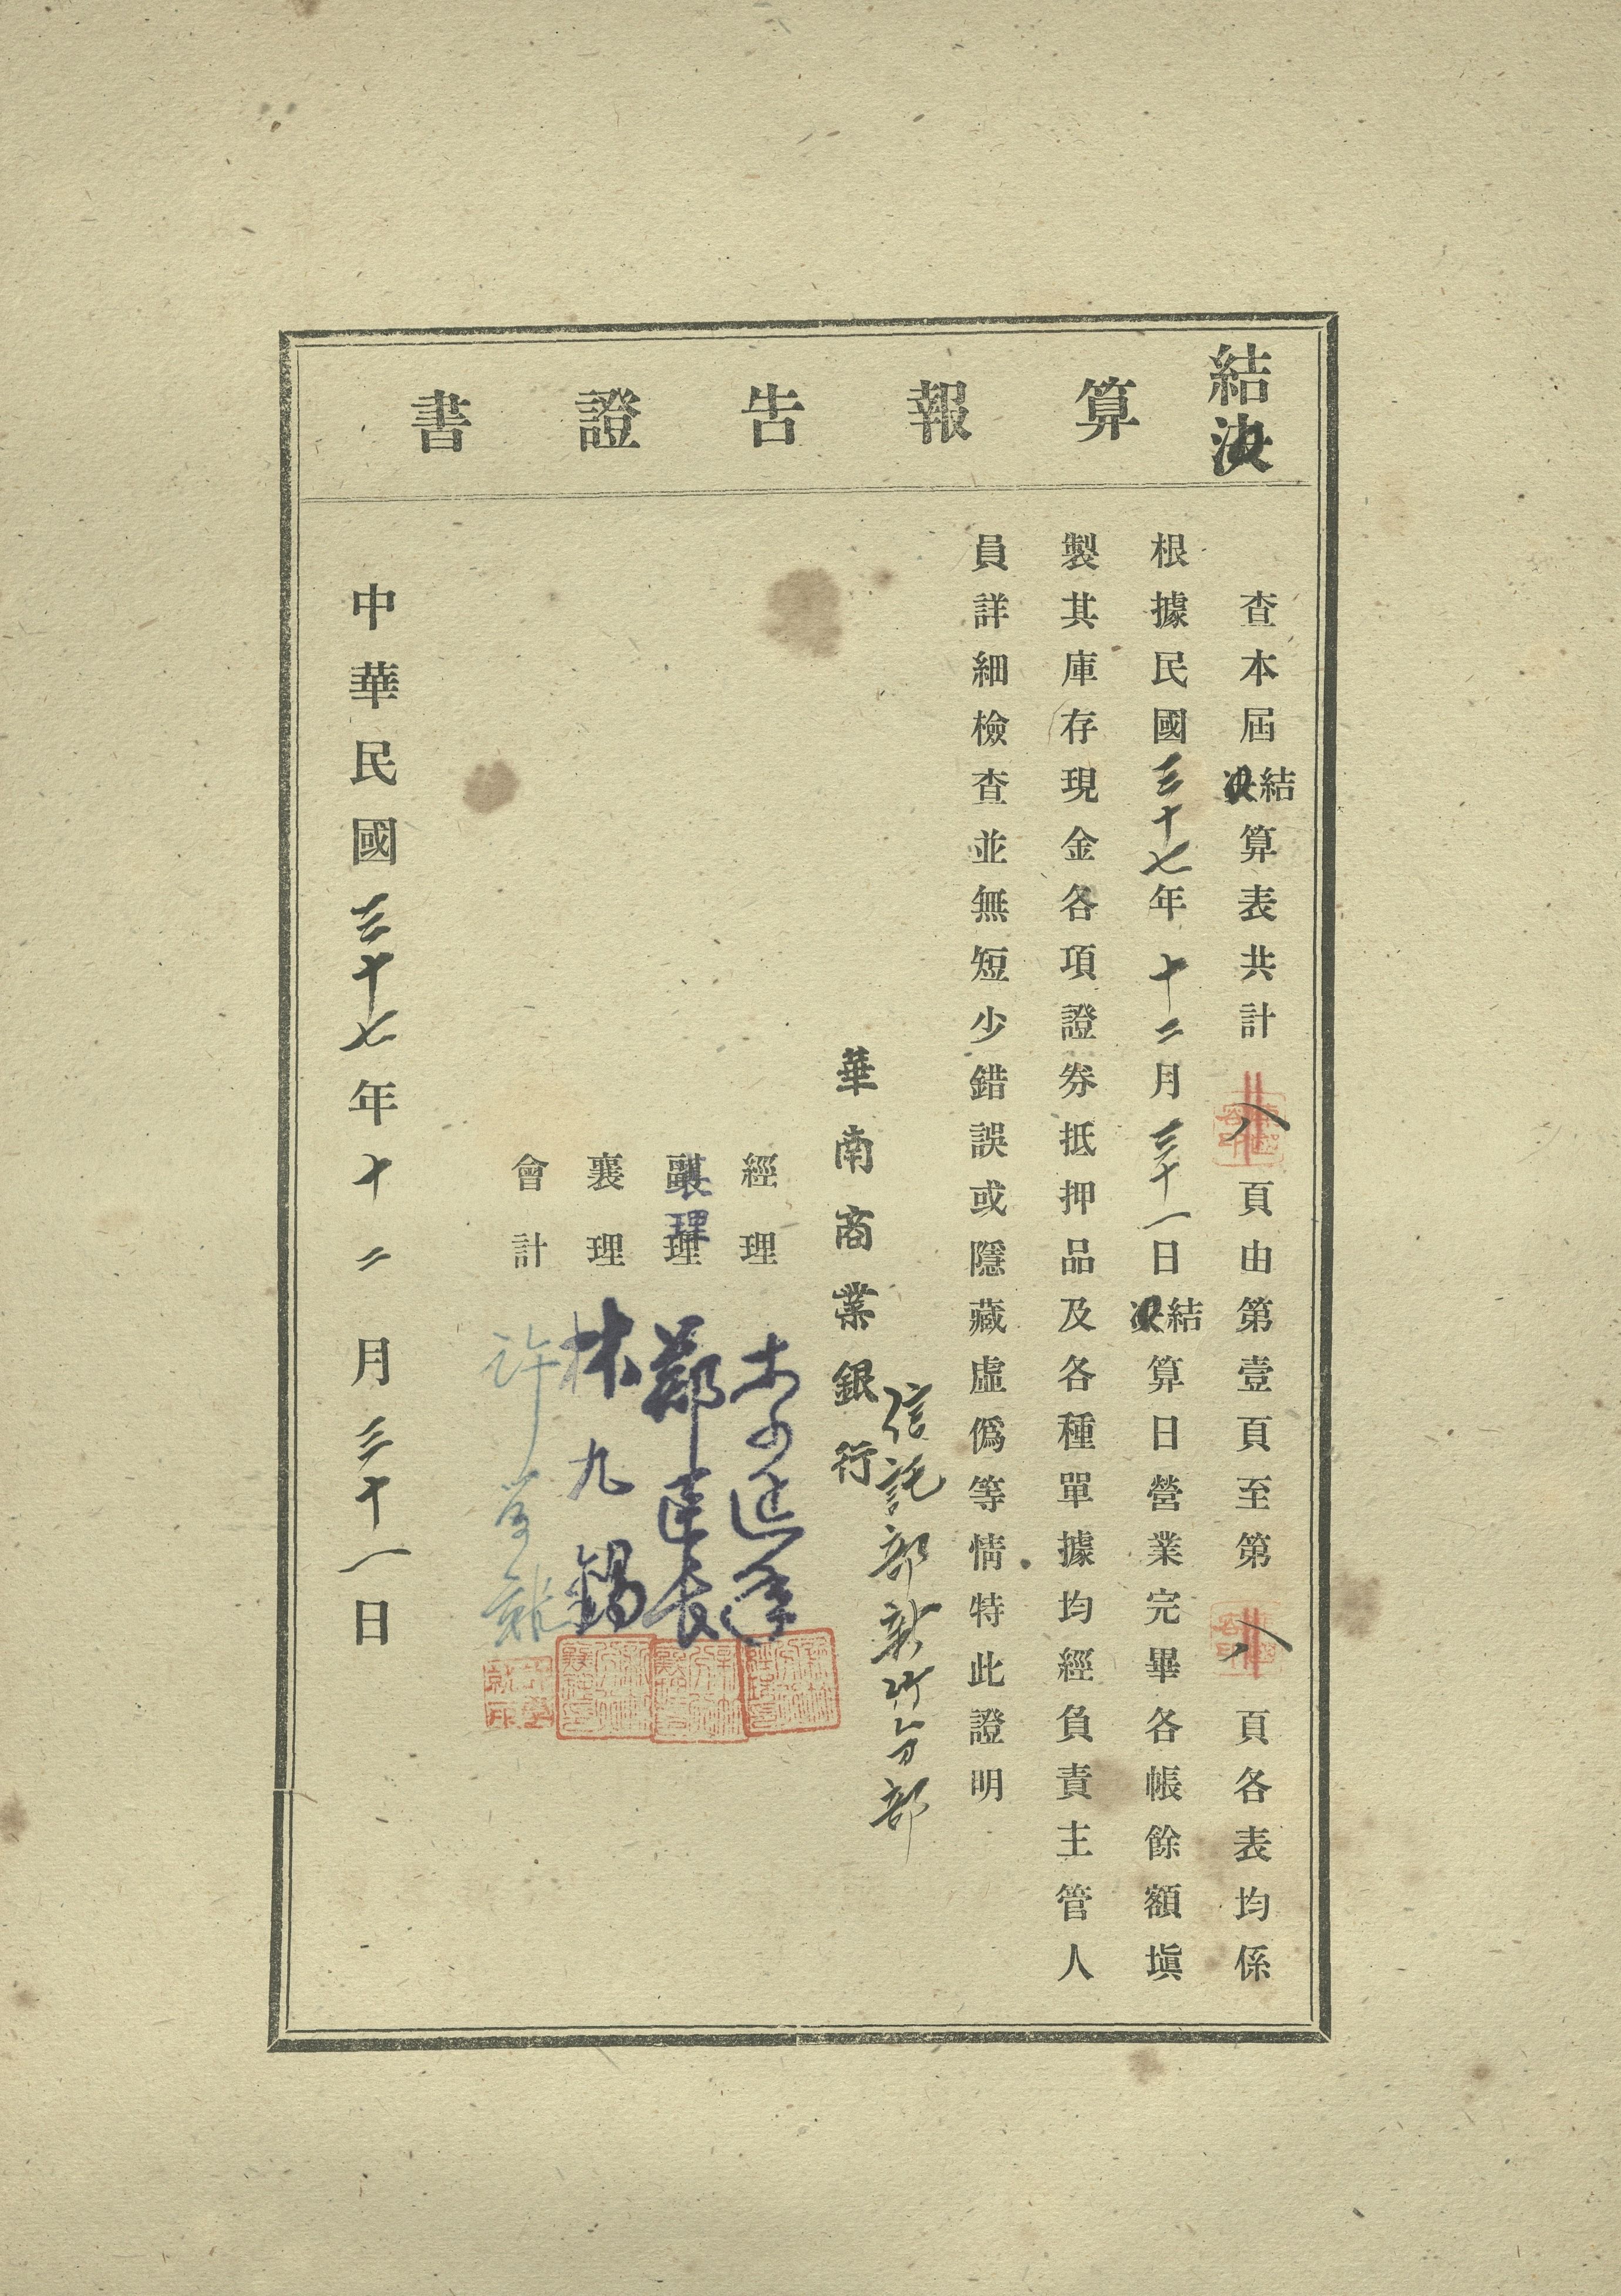 結決算報告證書
查本屆結決算表共計八頁由第壹頁至第八頁各表均係
根據民國三十七年十二月三十一日結決算日營業完畢各帳餘額塡
製其庫存現金各項證券抵押品及各種單據均經負責主管人
員詳細檢查並無短少錯誤或隱藏虛僞等情特此證明
華南商業銀行
信託部新竹分部
經理
襄理 鄭建長
襄理 林九錫
會計 許
中華民國三十七年十二月三十一日